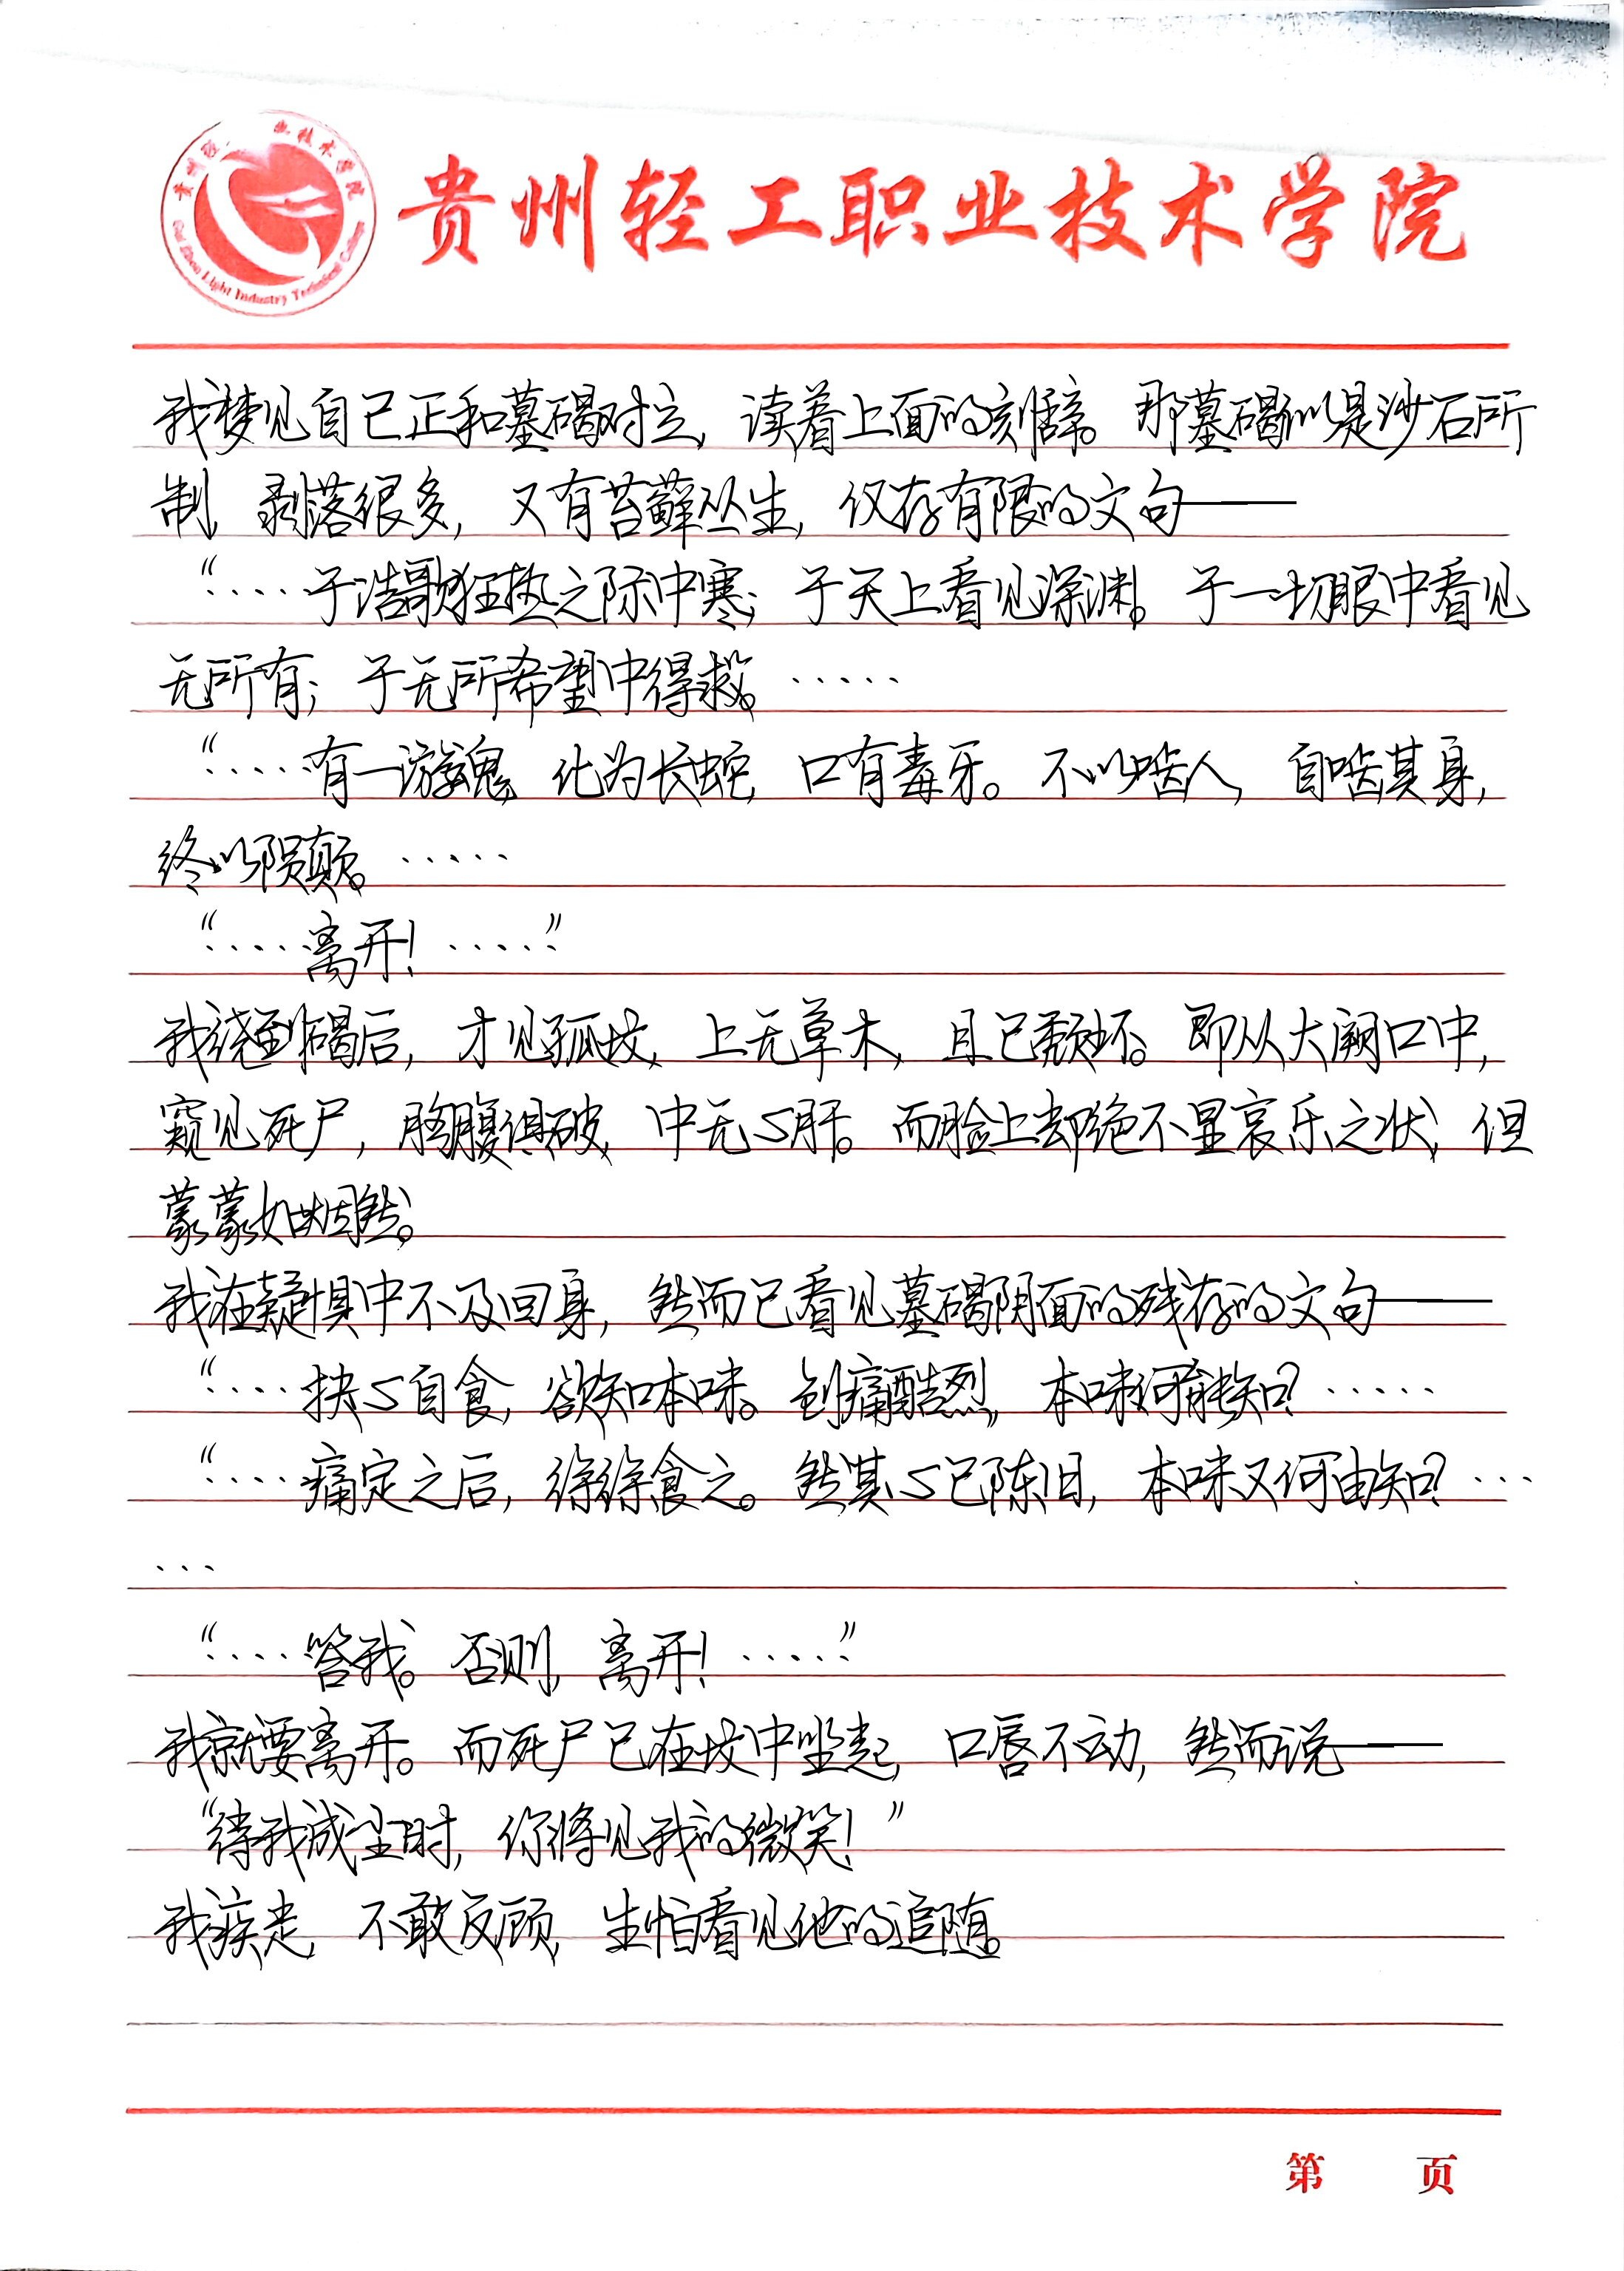 贵州轻工职业技术学院
Light Industry Technical College
我梦见自己正和墓碣对立，读着上面的刻辞。那墓碣似是沙石所
制，剥落很多，又有苔藓丛生，仅存有限的文句——
“……于浩歌狂热之际中寒；于天上看见深渊。于一切眼中看见
无所有；于无所希望中得救。……
“……有一游魂，化为长蛇，口有毒牙。不以啮人，自啮其身，
终以陨颠。……
“……离开！……”
我绕到碣后，才见孤坟，上无草木，且已颓坏。即从大阙口中，
窥见死尸，胸腹俱破，中无心肝。而脸上却绝不显哀乐之状，但
蒙蒙如烟然。
我在疑惧中不及回身，然而已看见墓碣阴面的残存的文句——
“……抉心自食，欲知本味。创痛酷烈，本味何能知？……
“……痛定之后，徐徐食之。然其心已陈旧，本味又何由知？…
…
“……答我。否则，离开！……”
我就要离开。而死尸已在坟中坐起，口唇不动，然而说——
“待我成尘时，你将见我的微笑！”
我疾走，不敢反顾，生怕看见他的追随。
第 页